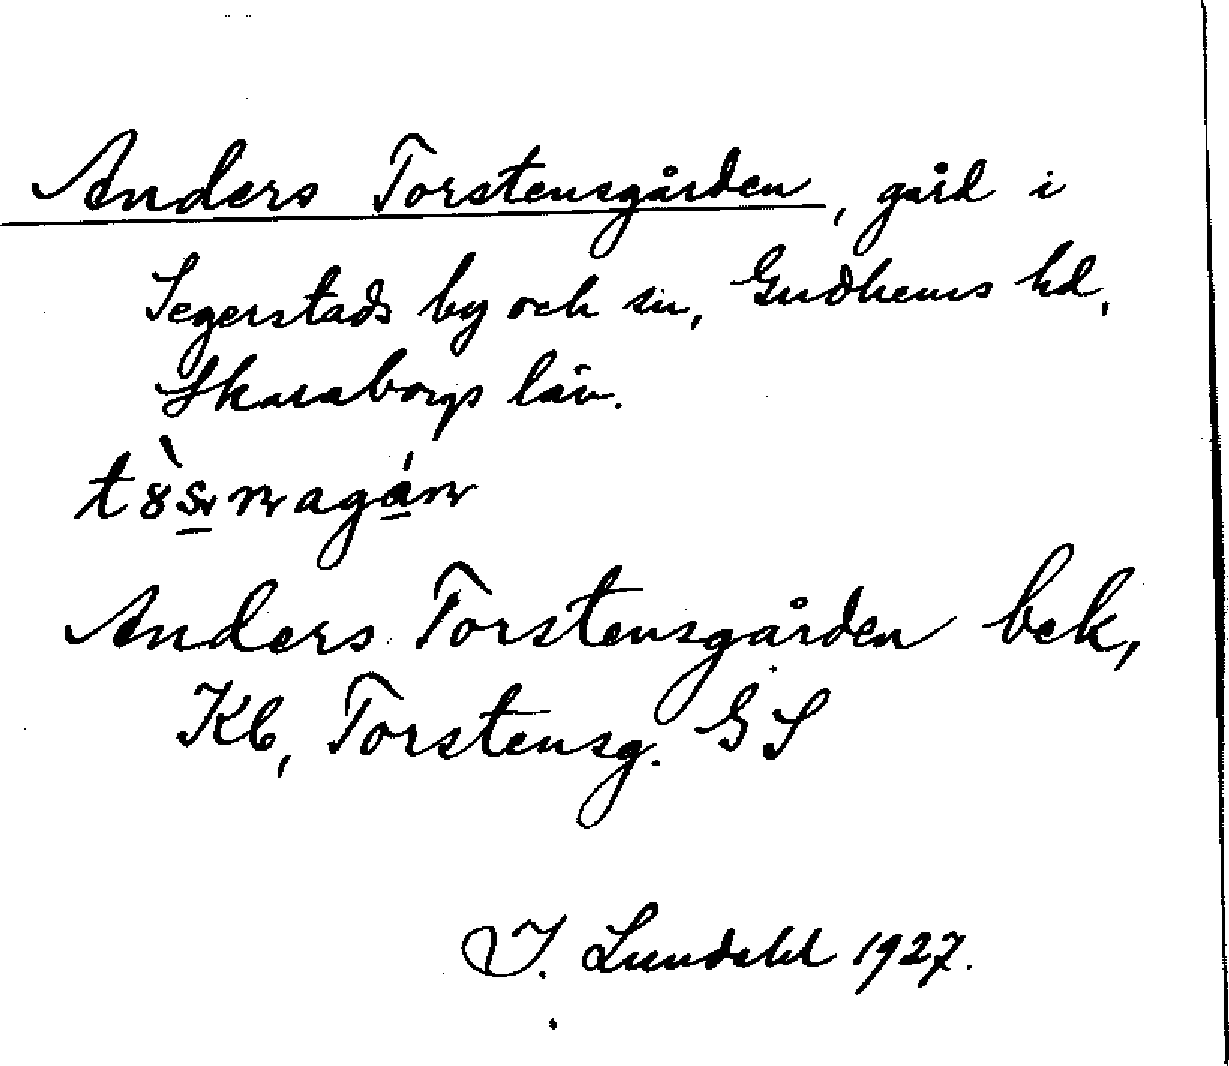 Anders Torstensgården, gård i
Segerstads by och sn, Gudhems hd,
Skaraborgs län.
Anders Torstensgården bek,
Kb, Torstensg. GS
I. Lundahl 1927.